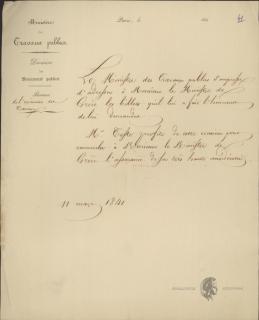 Ministère
des
Travaux publics.
Division
Monuments publics
Bureau
Paris, le 184
Le Ministre des Travaux publics s'empresse
d'adresser à Monsieur le Ministre de
Grèce les billets qu'il lui a fait l'honneur
de lui demander.
Mr Teste profite de cette occasion pour
renouveler à Monsieur le Ministre de
Grèce l'assurance de sa très haute considération
11 mars 1841